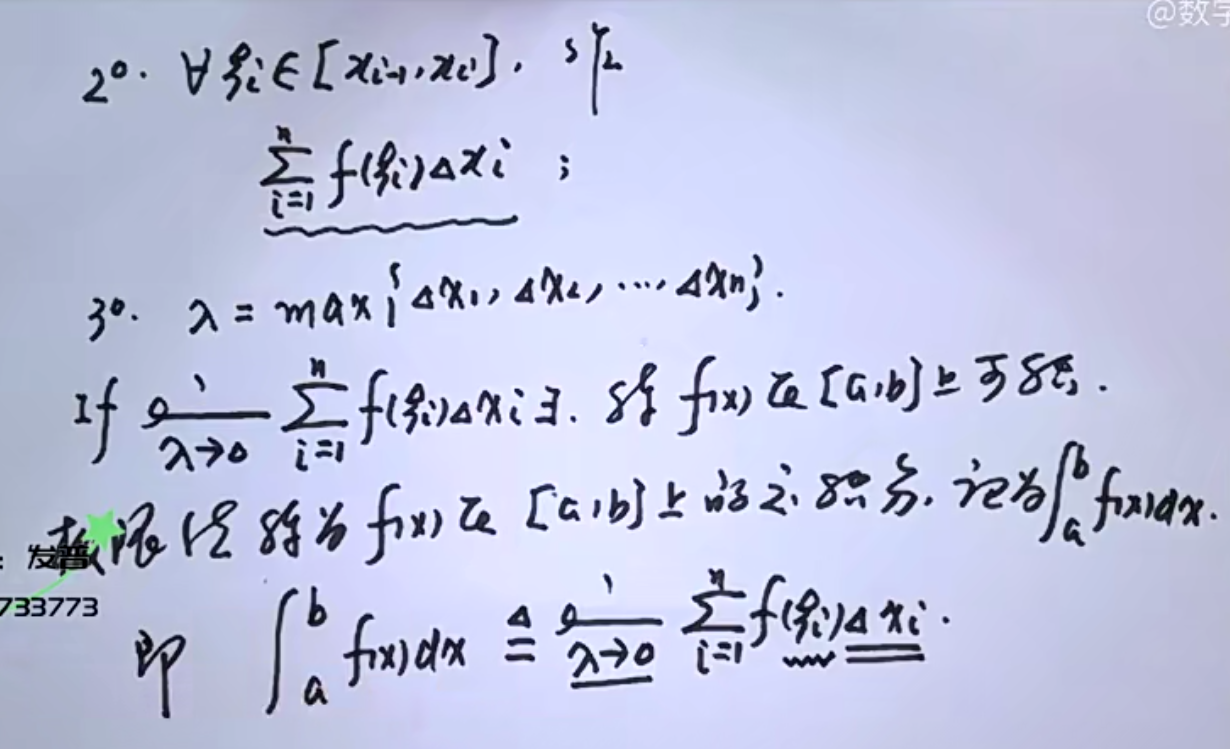 @数字
2°. ∀ξi∈[xi-1,xi],
∑_{i=1}^{n} f(ξi)Δxi ;
3°. λ = max{Δx1, Δx2, …, Δxn}.
If lim_{λ→0} ∑_{i=1}^{n} f(ξi)Δxi ∃. 称 f(x) 在 [a,b] 上可积.
极限值称为 f(x) 在 [a,b] 上的定积分. 记为 ∫_a^b f(x)dx.
: 发普
733773
即 ∫_a^b f(x)dx ≜ lim_{λ→0} ∑_{i=1}^{n} f(ξi)Δxi.